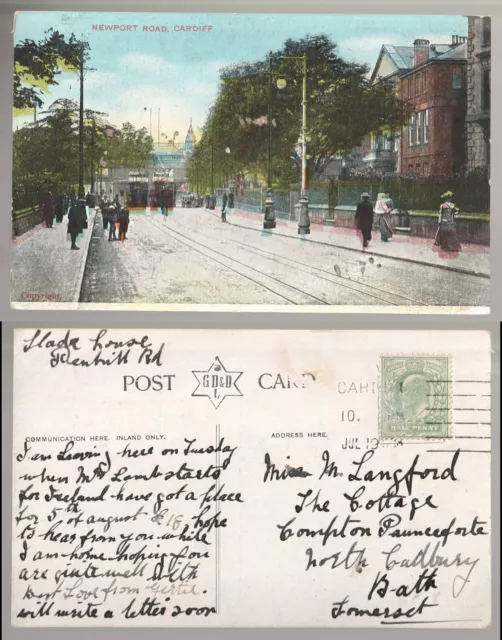 NEWPORT ROAD, CARDIFF
Copyright.
Slade house
Penhill Rd
POST CARD
G.D.&D.
L
COMMUNICATION HERE. INLAND ONLY.
ADDRESS HERE.
CARDIFF
10.
JUL 19
HALF PENNY
I am Leaving here on Tuesday
when Mrs Lamb starts
for Ireland have got a place
for 5th of august £18 hope
to hear from you while
I am home hoping you
are quite well with
Best Love from Gertie.
will write a letter soon
Miss M. Langford
The Cottage
Compton Paunceforte
North Cadbury
Bath
Somerset